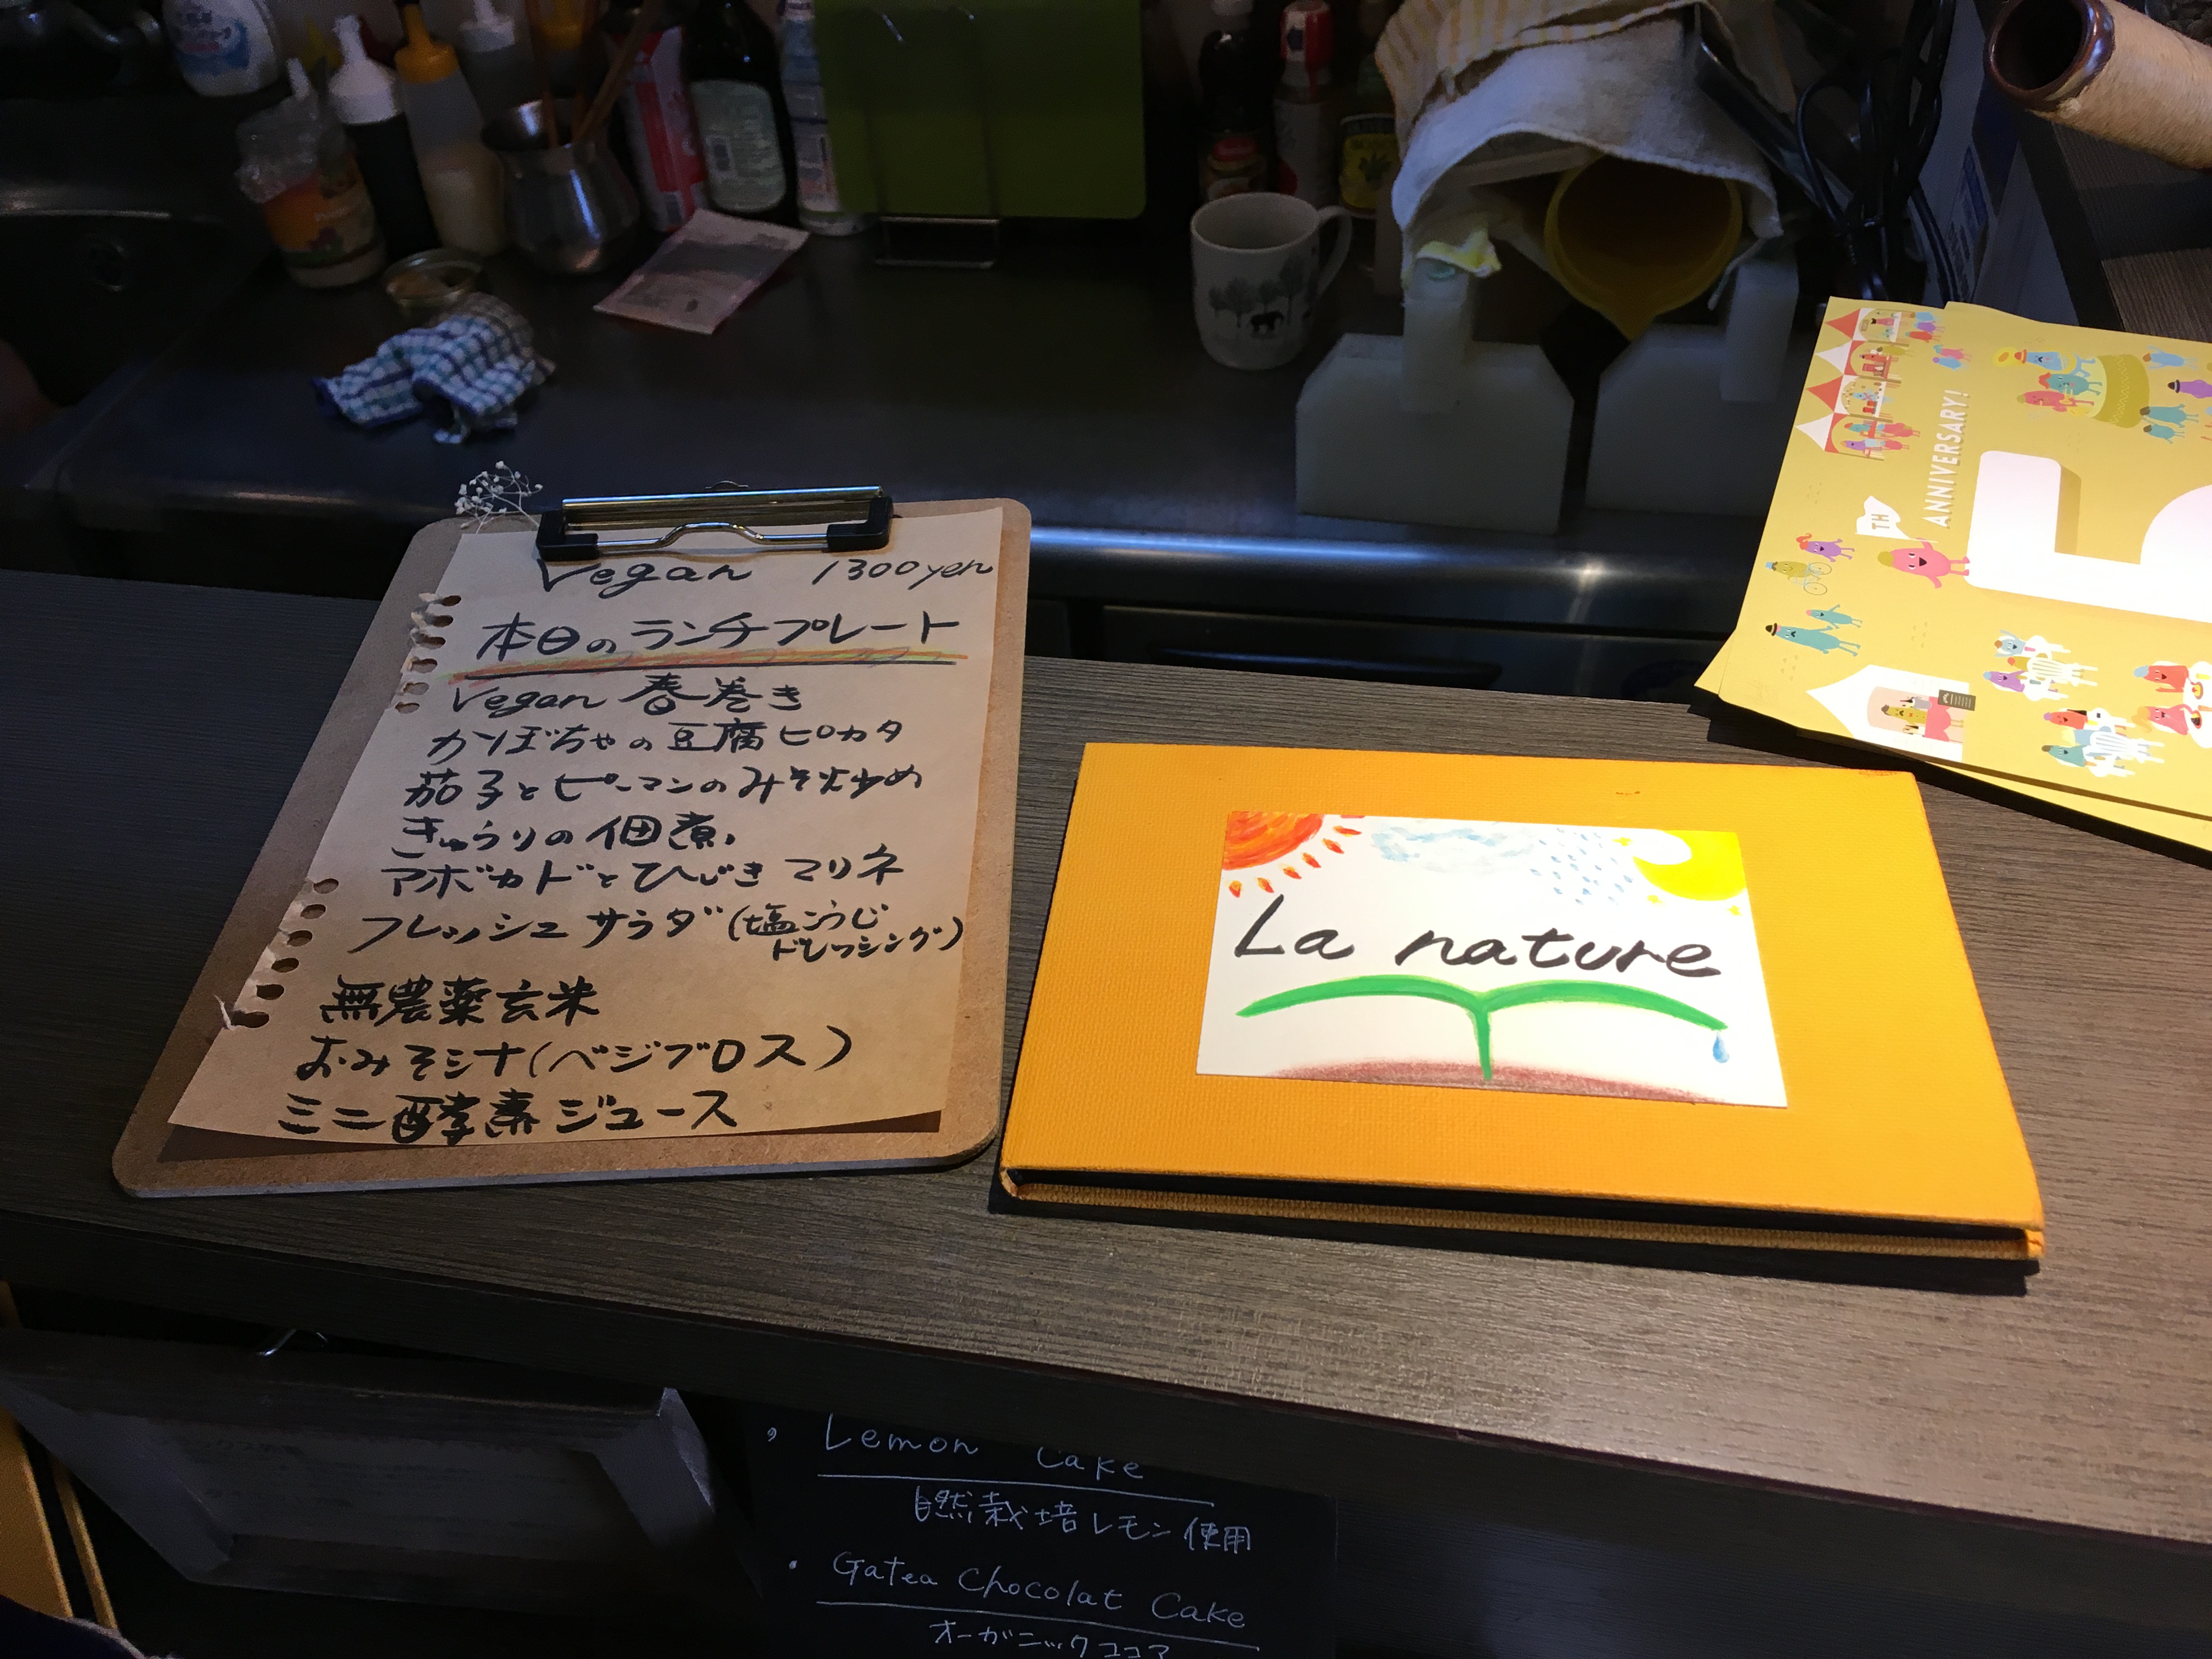 Vegan 1300yen
本日のランチプレート
Vegan 春巻き
かぼちゃの豆腐ピカタ
茄子とピーマンのみそ炒め
きゅうりの佃煮
アボカドとひじきマリネ
フレッシュサラダ(塩こうじ
ドレッシング)
無農薬玄米
おみそシナ(ベジブロス)
ミニ酵素ジュース
La nature
TH
ANNIVERSARY!
・Lemon Cake
自然栽培レモン使用
・Gatea Chocolat Cake
オーガニックココア